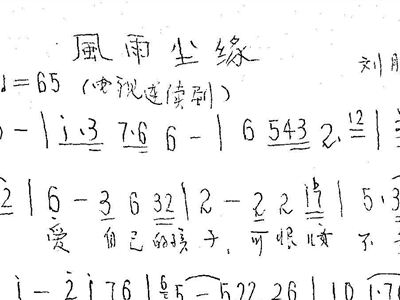 風雨尘缘
♩=65 (电视连续剧) 刘
- | i·3 7·6 6 - | 6 543 2·12 |
2 | 6 - 3 6 32 | 2 - 2 2 17 | 5·3
爱 自己的孩子,可恨 不
i - 2i76 | 65 - 522 26 | 10 1·76